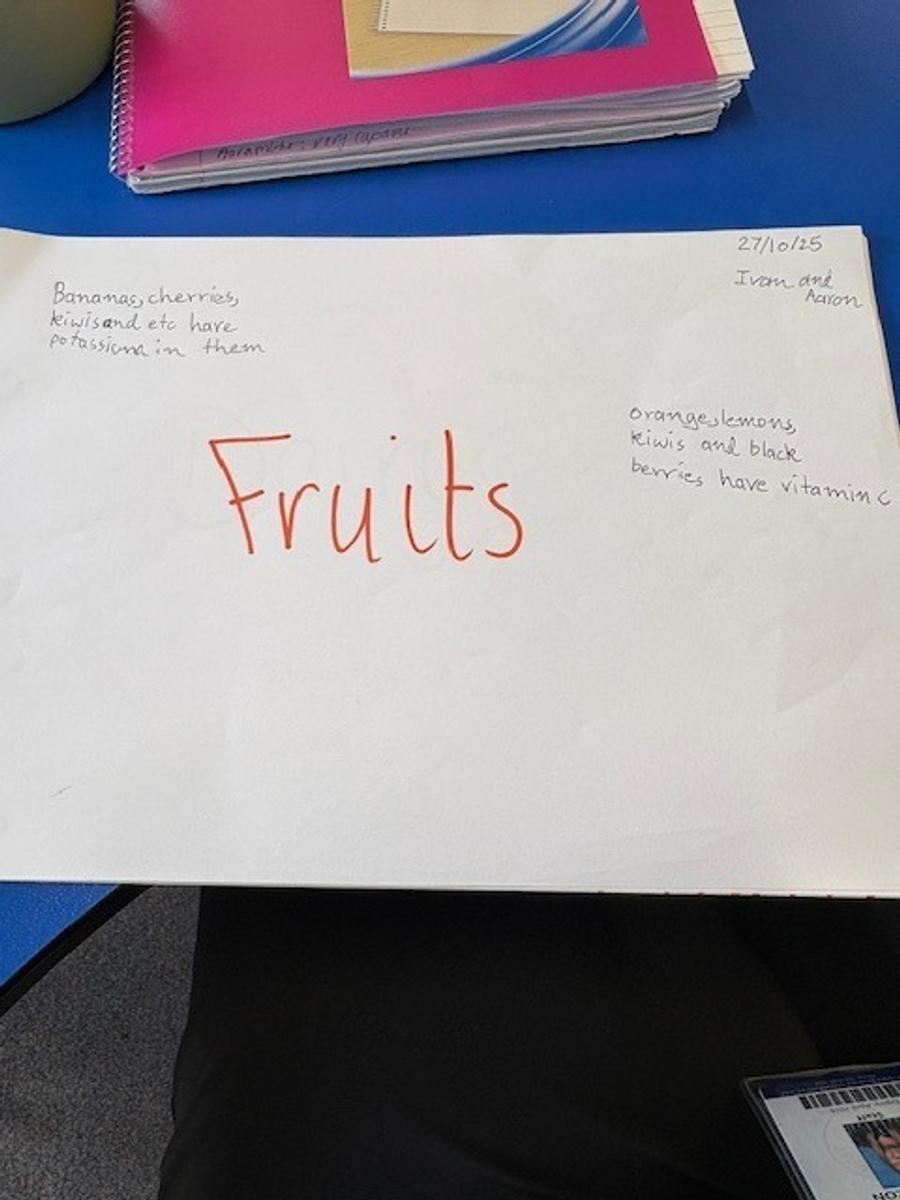 27/10/25
Ivan and
Aaron
Bananas, cherries,
kiwis and etc have
potassium in them
orange, lemons,
kiwis and black
berries have vitamin c
Fruits
Staff